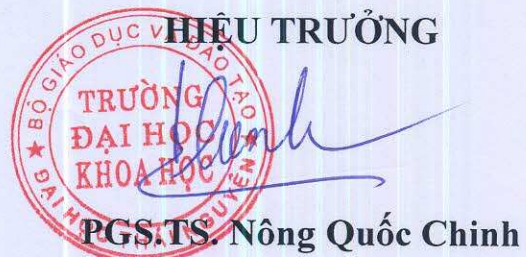 HIỆU TRƯỞNG
BỘ GIÁO DỤC VÀ ĐÀO TẠO
TRƯỜNG
ĐẠI HỌC
KHOA HỌC
ĐẠI HỌC THÁI NGUYÊN
PGS.TS. Nông Quốc Chinh